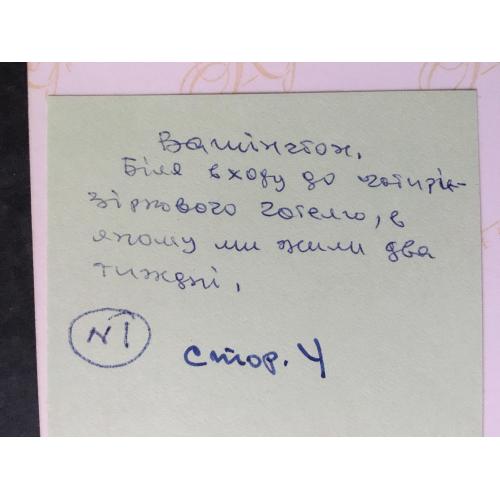 Вашінгтон,
Біля входу до чотирьх-
зіркового готелю, в
якому ми жили два
тиждні,
N1
стор. 4